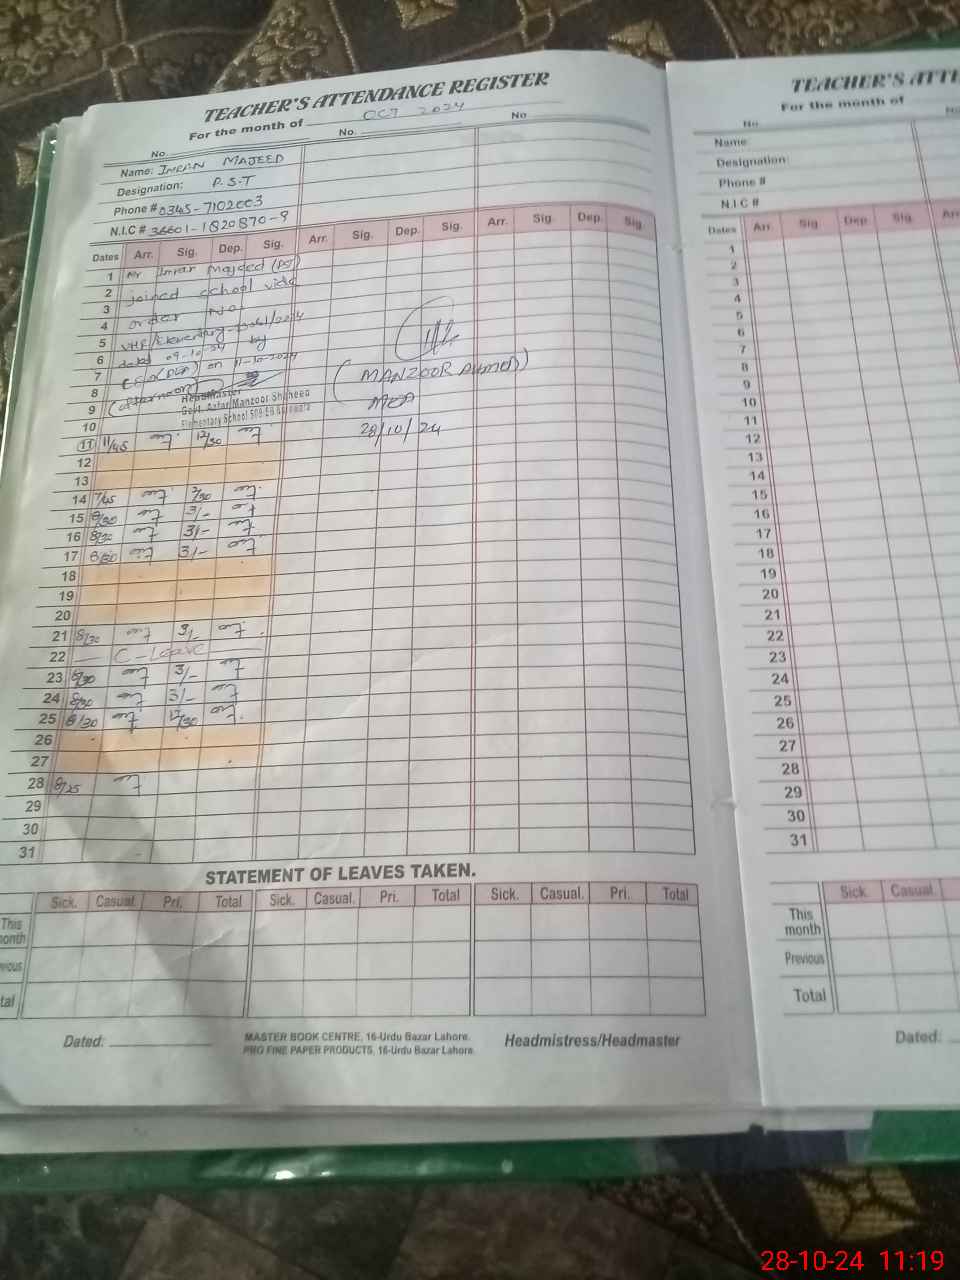 TEACHER'S ATTENDANCE REGISTER
For the month of OCT 2024
No. No. No
Name: IMRAN MAJEED
Designation: P.S.T
Phone # 0345-7102003
N.I.C # 36601-1820870-9
Dates Arr. Sig. Dep. Sig. Arr. Sig. Dep. Sig. Arr. Sig. Dep. Sig.
1 Mr Imran Majeed
2 joined school vide
3 order No
4
5
6 dated 09-10-24 by
7 on 11-10-2024
8 (afternoon)
Headmaster
Manzoor Shaheed
Elementary School
9
10
(MANZOOR AHMED)
MEA
28/10/24
11 11/45 12/30
12
13
14 7/45 2/30
15 8/30 3/-
16 8/30 3/-
17 8/30 3/-
18
19
20
21 8/30 3/-
22 — C-Leave —
23 8/30 3/-
24 8/30 3/-
25 8/30 12/30
26
27
28 8/25
29
30
31
STATEMENT OF LEAVES TAKEN.
Sick. Casual. Pri. Total Sick. Casual. Pri. Total Sick. Casual. Pri. Total
This
onth
vious
tal
Dated:
MASTER BOOK CENTRE, 16-Urdu Bazar Lahore.
PRO FINE PAPER PRODUCTS, 16-Urdu Bazar Lahore.
Headmistress/Headmaster
TEACHER'S ATTE
For the month of
No
Name:
Designation:
Phone #
N.I.C #
Dates Arr. Sig. Dep. Sig. Arr
1
2
3
4
5
6
7
8
9
10
11
12
13
14
15
16
17
18
19
20
21
22
23
24
25
26
27
28
29
30
31
Sick. Casual.
This
month
Previous
Total
Dated:
28-10-24 11:19